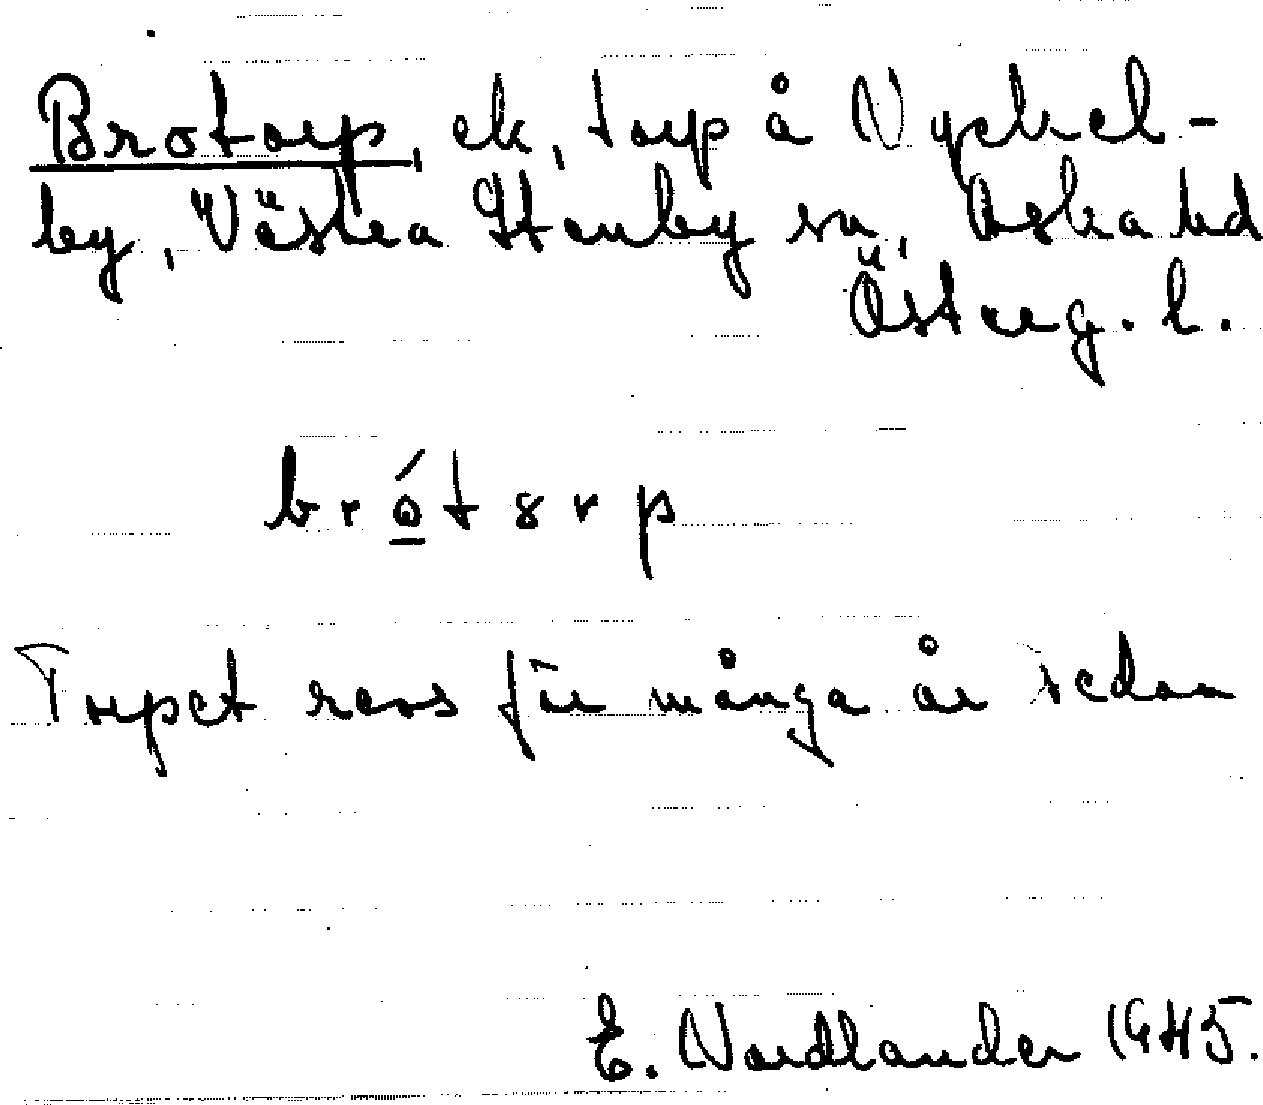 Brotorp, ek, torp å Nyckel-
by, Västra Stenby sn, Aska hd
Österg. l.
brót8rp
Torpet revs för många år sedan
E. Nordlander 1945.